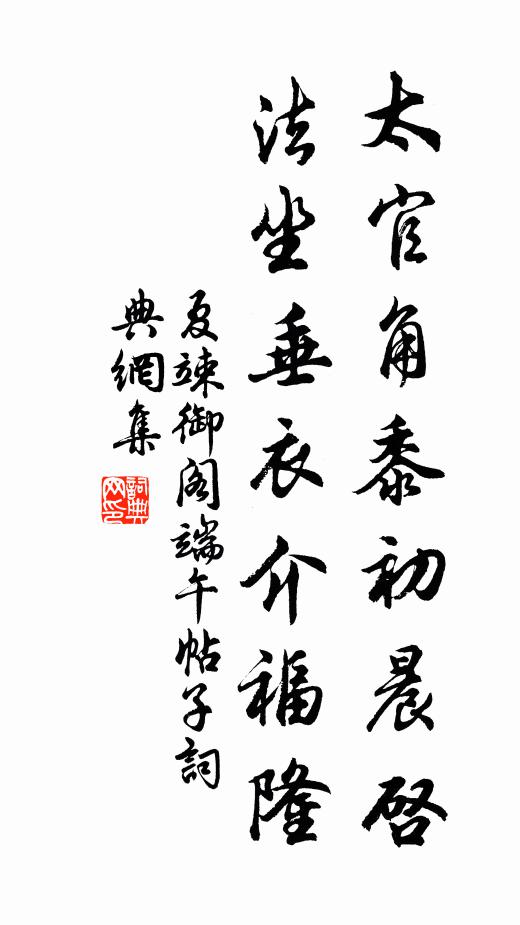 太官角黍初晨啓
法坐垂衣介福隆
夏竦御阁端午帖子詞
典網集
詞典
网印